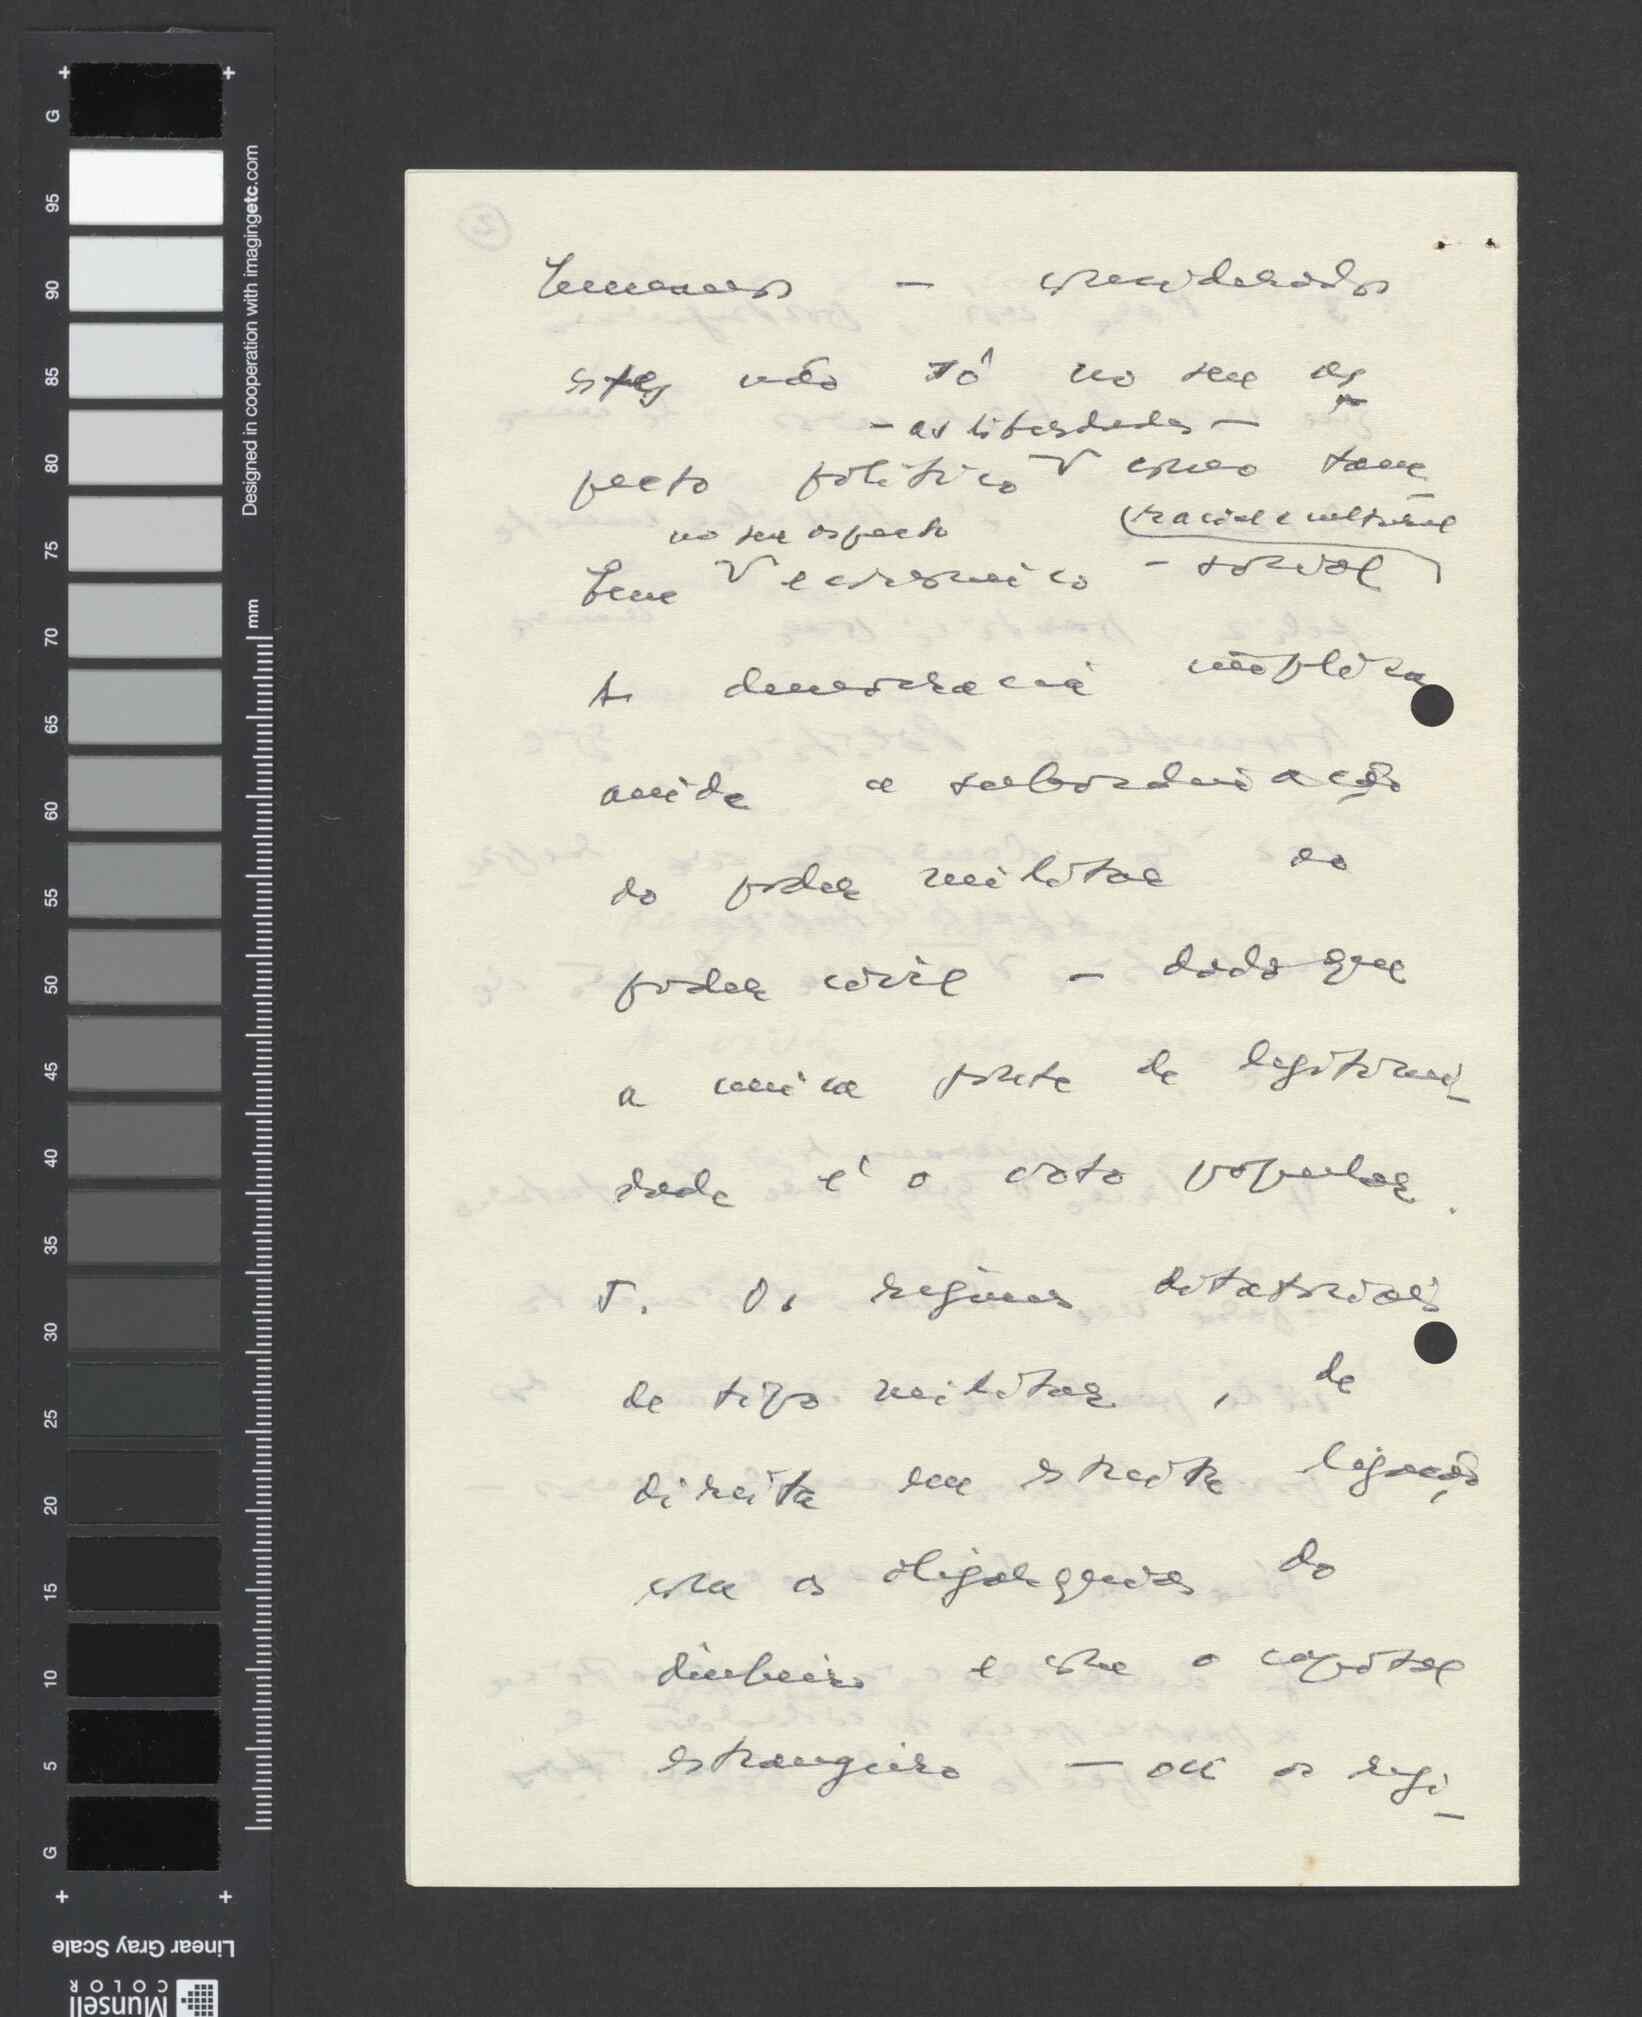 G
95
90
85
80
75
70
65
60
55
50
45
40
35
30
25
20
15
10
5
G
Designed in cooperation with imagingetc.com
mm
Linear Gray Scale
Munsell
COLOR
2
humanos – considerados
estes não só no seu as-
– as liberdades –
pecto político V como tam-
no seu aspecto (racial e cultural
bem V economico – social
A democracia implica
ainda a subordinação
do poder militar ao
poder civil – dado que
a unica fonte de legitimi-
dade é o voto popular.
5. Os regimes ditatoriais
de tipo militar, de
direita em estreita ligação
com as oligarquias do
dinheiro e com o capital
estrangeiro – ou os regi-